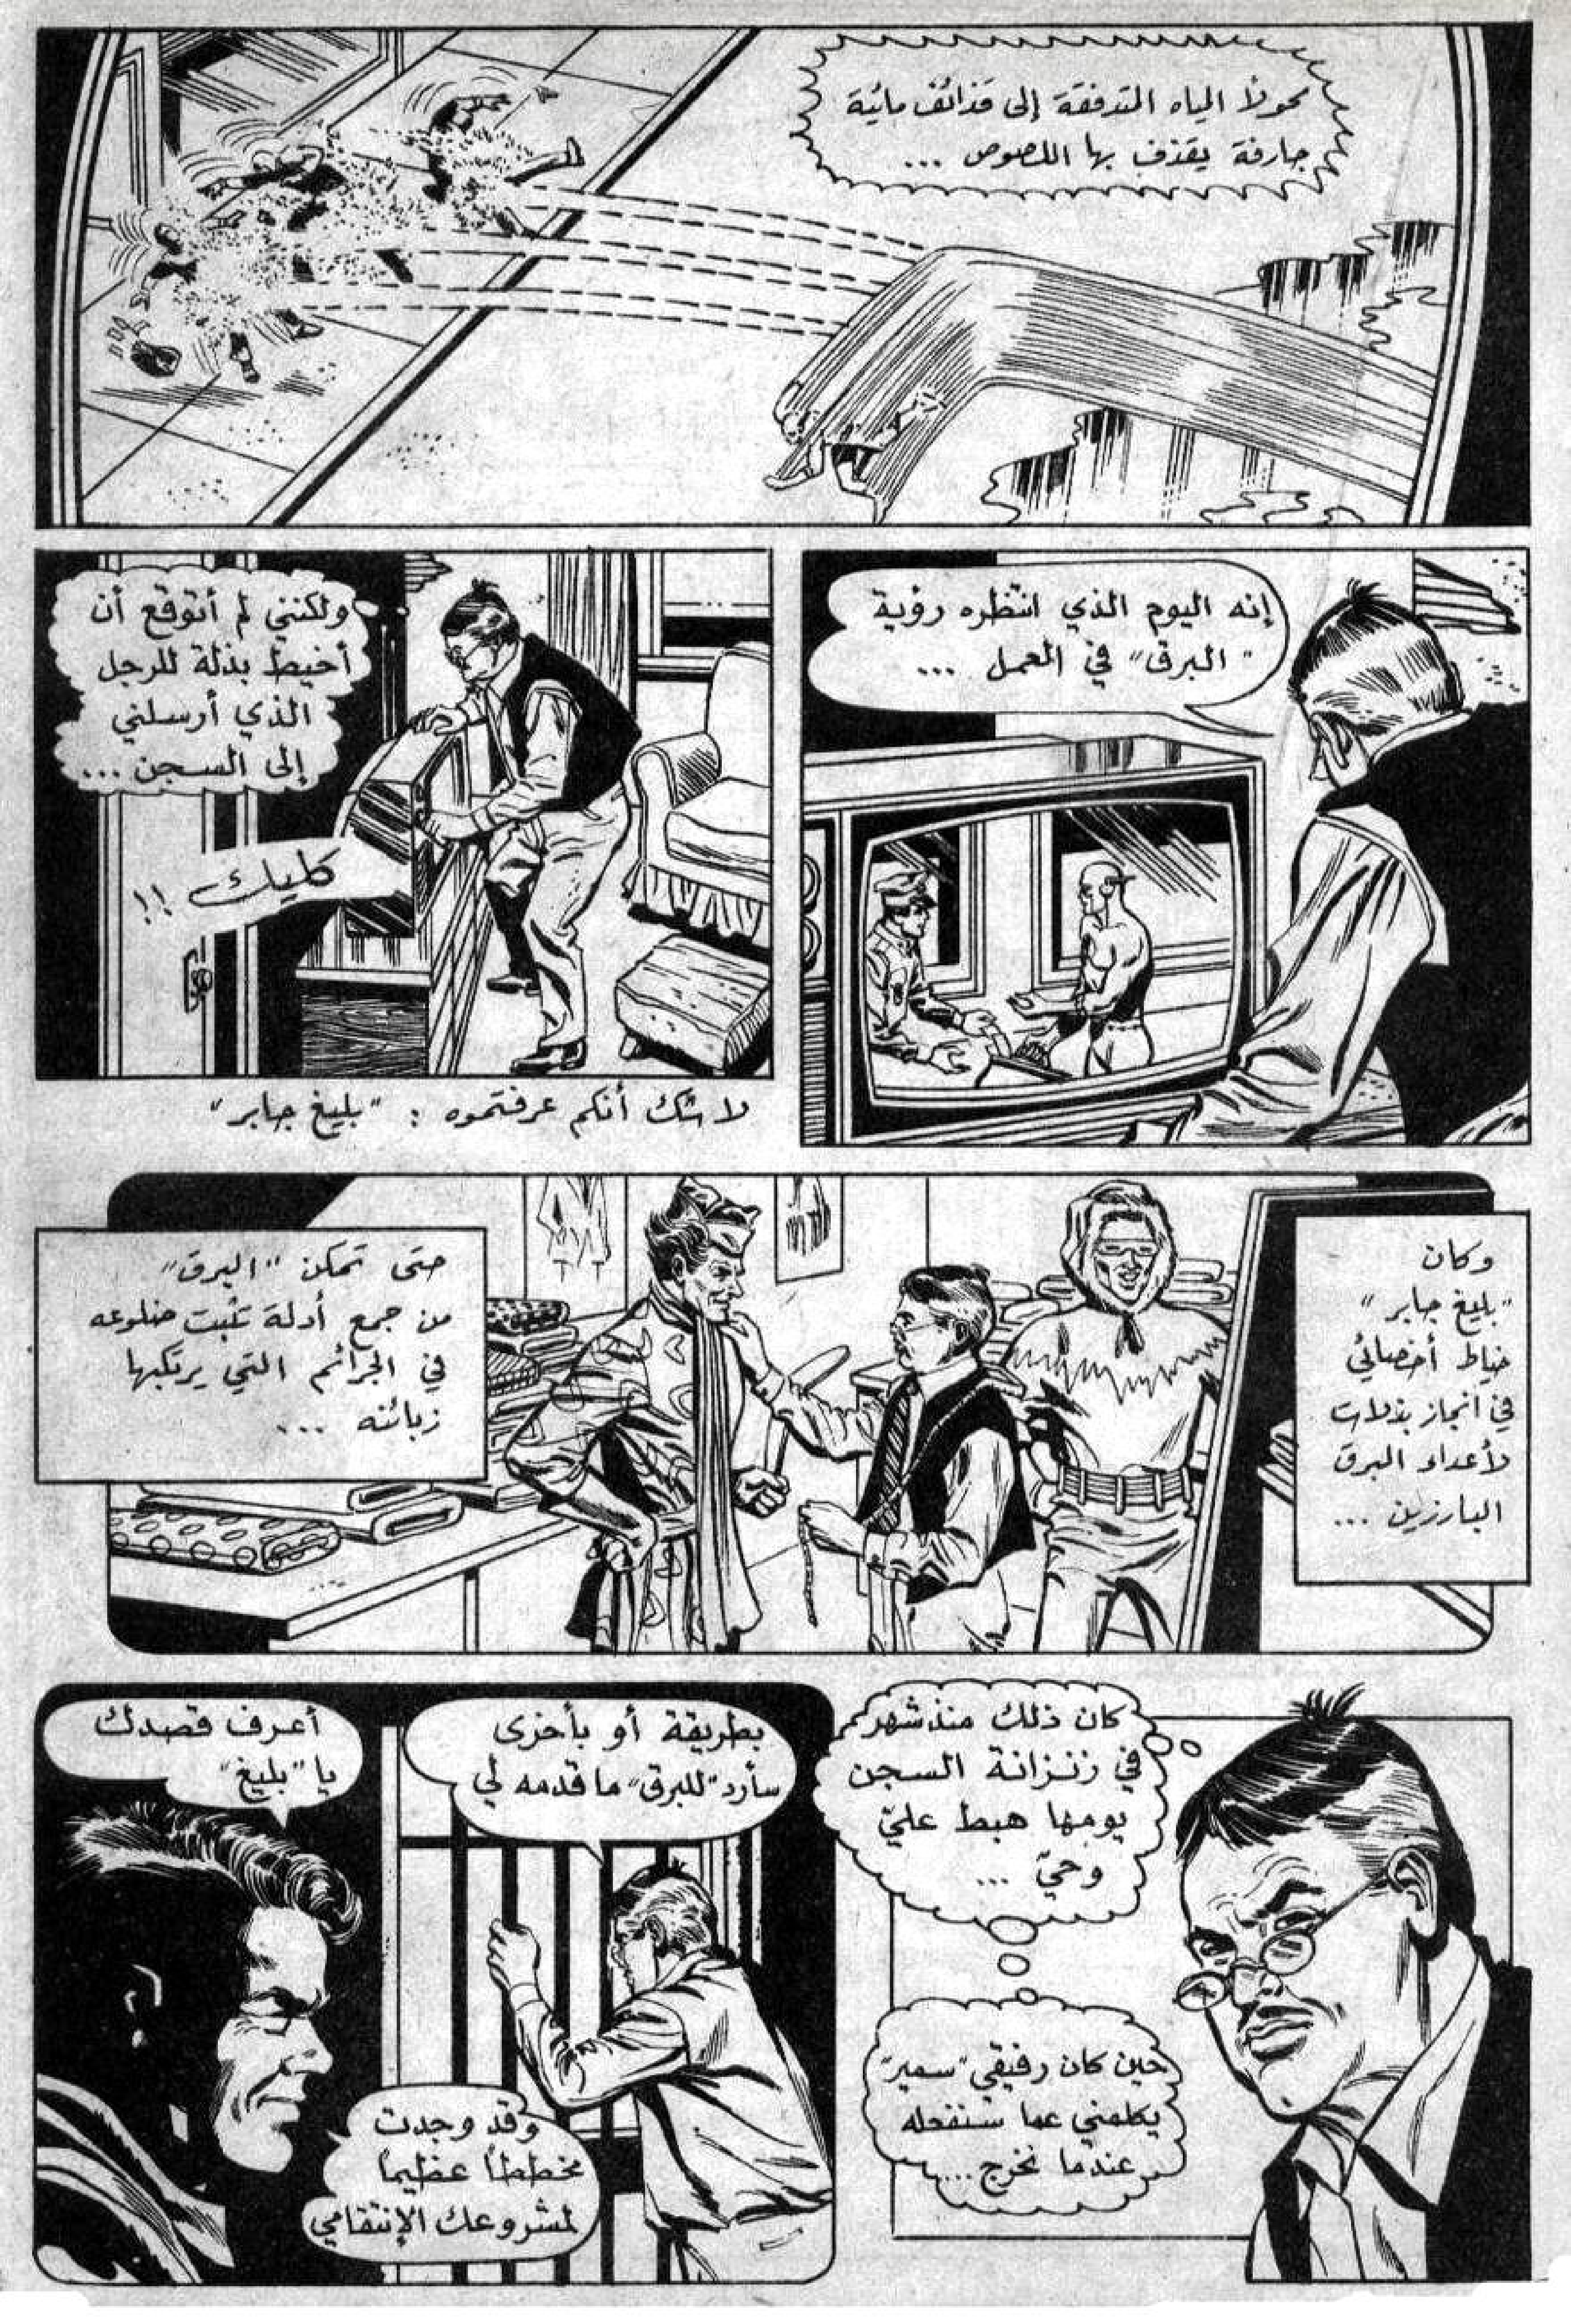 محولاً المياه المتدفقة إلى قذائف مائية
جارفة يقذف بها اللصوص ...
إنه اليوم الذي انتظره رؤية
"البرق" في العمل ...
ولكنني لم أتوقع أن
أخيط بذلة للرجل
الذي أرسلني
إلى السجن ...
كليك !!
لا شك أنكم عرفتموه : "بليغ جابر"
وكان
"بليغ جابر"
خياط أخصائي
في انجاز بذلات
لأعداء البرق
البارزين ...
حتى تمكن "البرق"
من جمع أدلة تثبت ضلوعه
في الجرائم التي يرتكبها
زبائنه ...
كان ذلك منذ شهر
في زنزانة السجن
يومها هبط عليّ
وحيٌ ...
حين كان رفيقي "سمير"
يكلمني عما سنفعله
عندما نخرج ...
بطريقة أو بأخرى
سأرد "للبرق" ما قدمه لي
أعرف قصدك
يا "بليغ"
وقد وجدت
مخططاً عظيماً
لمشروعك الإنتقامي